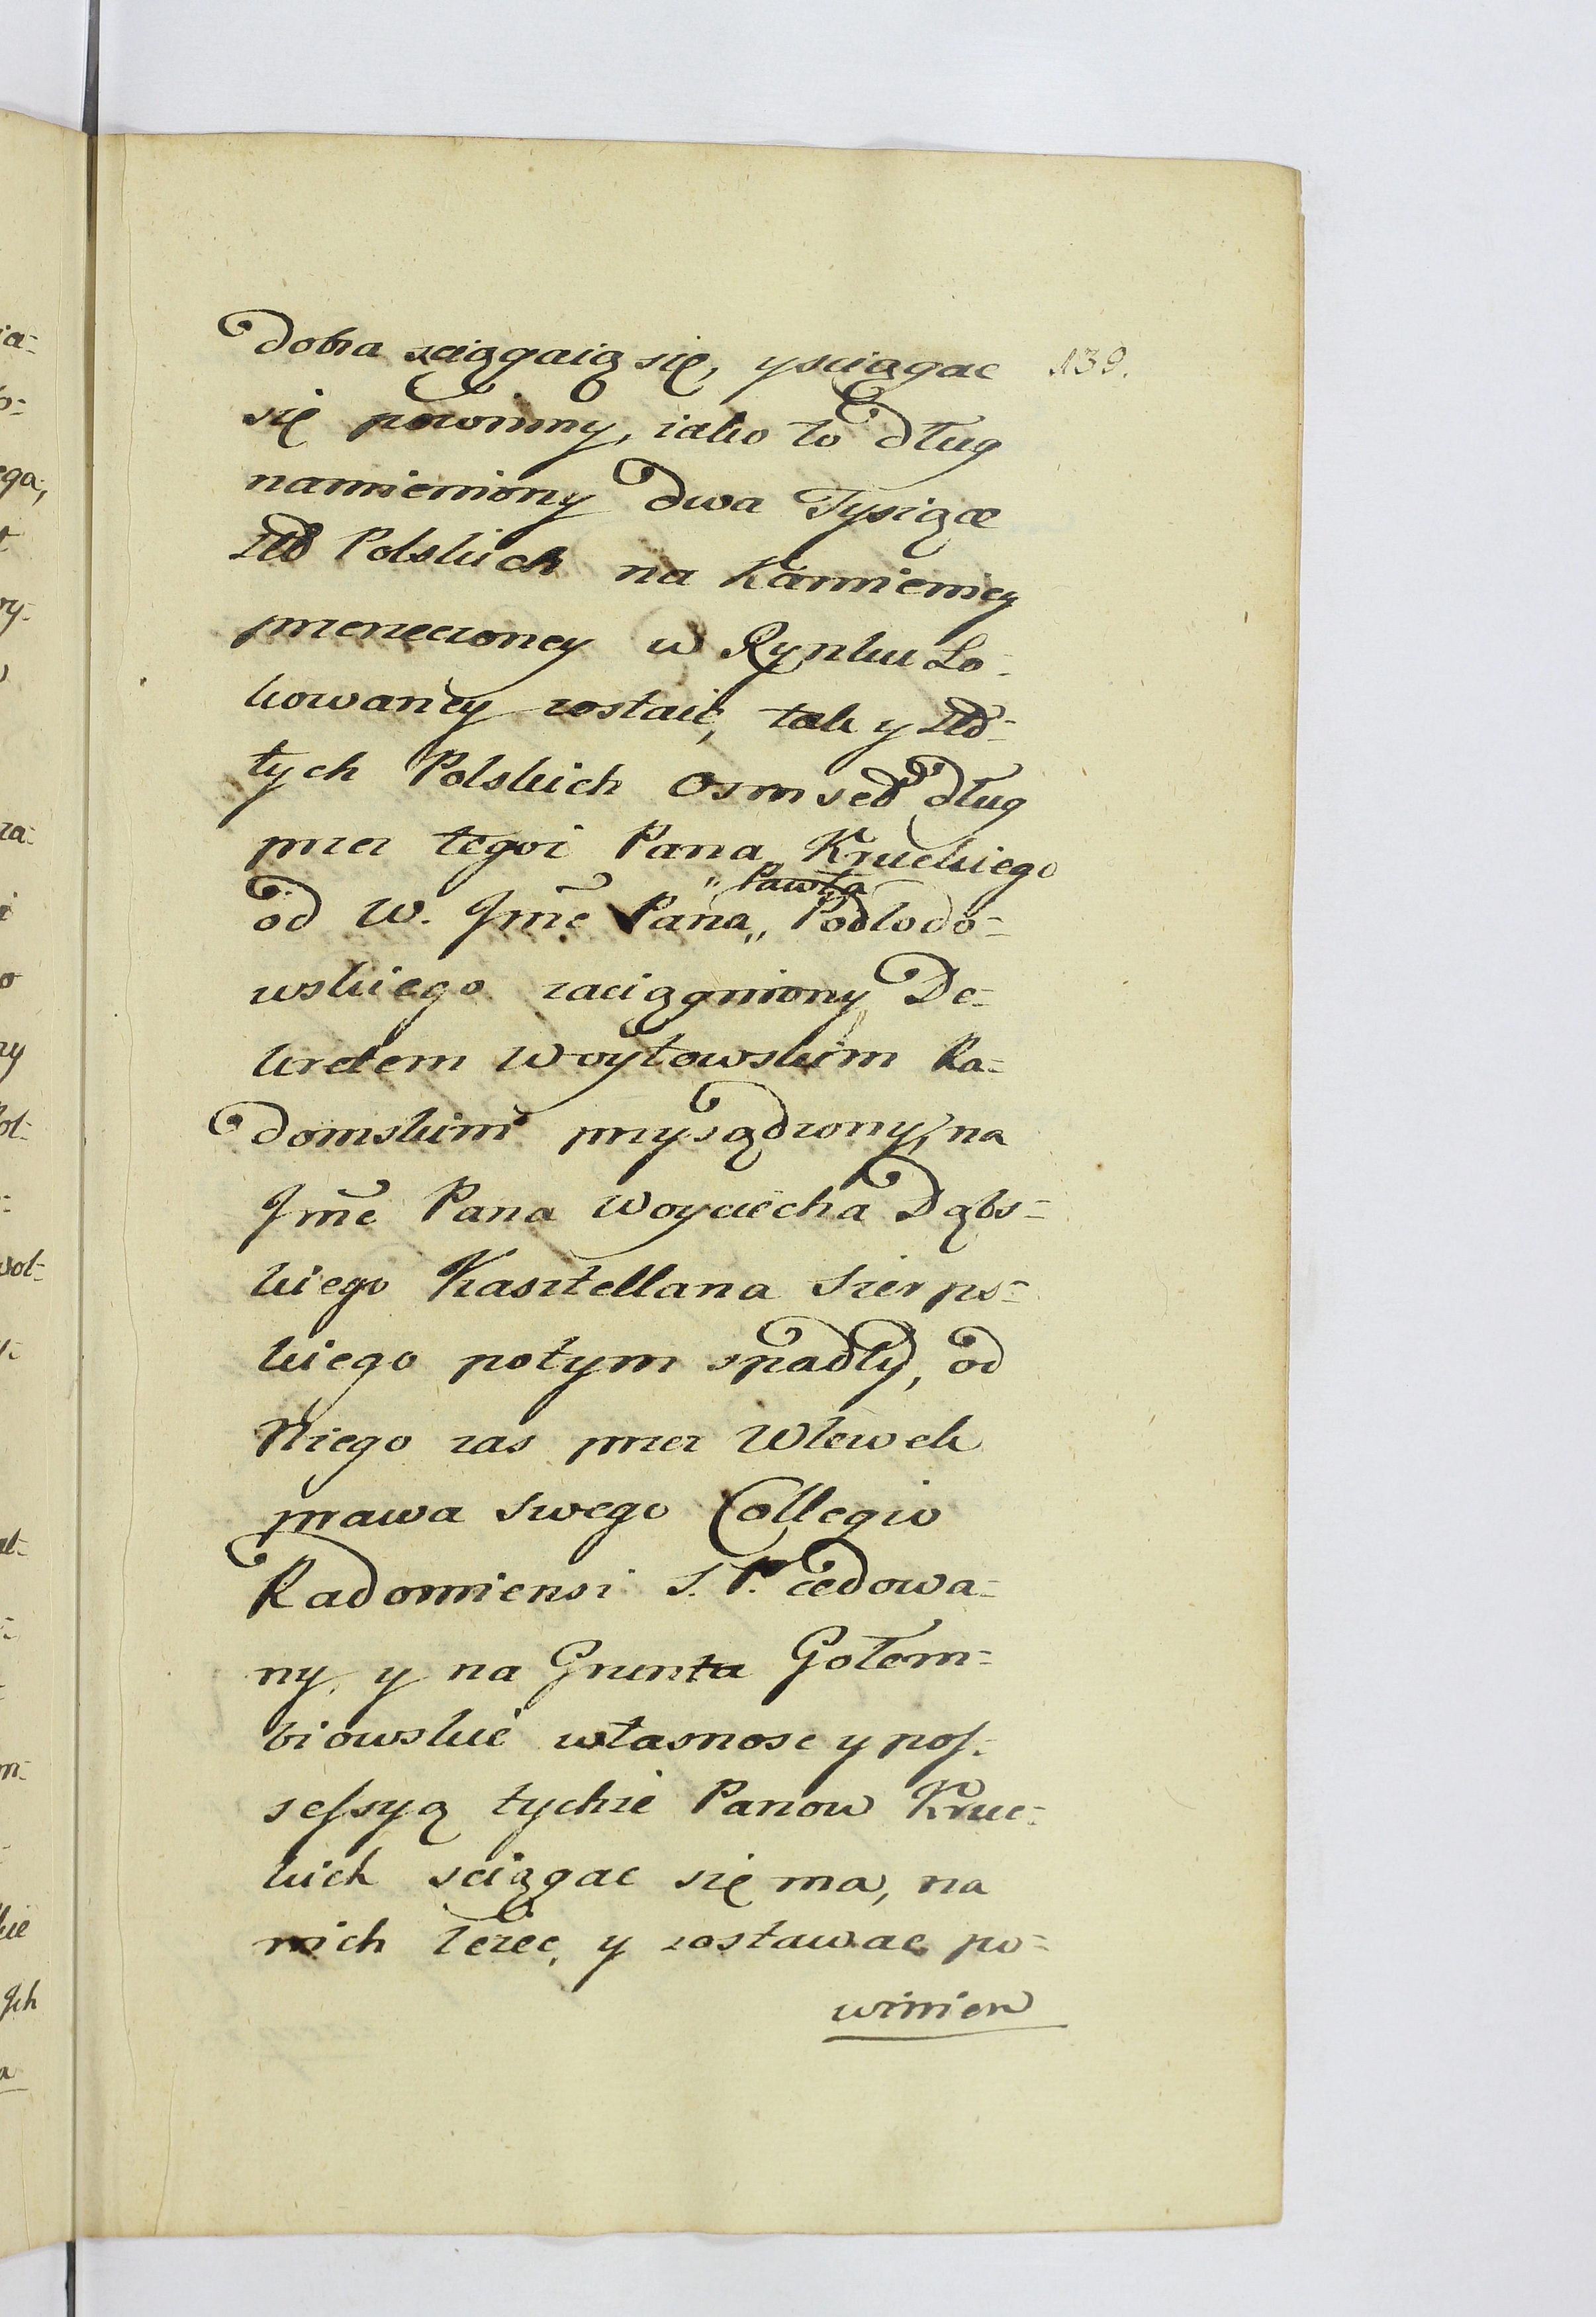 dobra sciągaią się, y sciągac 139.
się powinny, iako to dług
namieniony dwa Tysiące
Złł Polskich na Kamienicy
przerzeczoney w Rynku Lo-
kowaney zostaie, tak y Zło-
tych Polskich Osmset dług
przez tegoż Pana Kruckiego
Pawła
od W. Jmć Pana,, Podlodo-
wskiego zaciągniony De-
kretem Woytowskim Ra-
domskim przysądzony, na
Jmć Pana Woyciecha Dąbs-
kiego Kasztellana Sierps-
kiego potym spadły, od
Niego zas przez Wlewek
prawa swego Collegio
Radomiensi S. P. cedowa-
ny, y na Grunta Gołem-
biowskie własnosc y pos-
sessyą tychże Panow Kruc-
kich sciągac się ma, na
nich leżec, y zostawac po-
winien